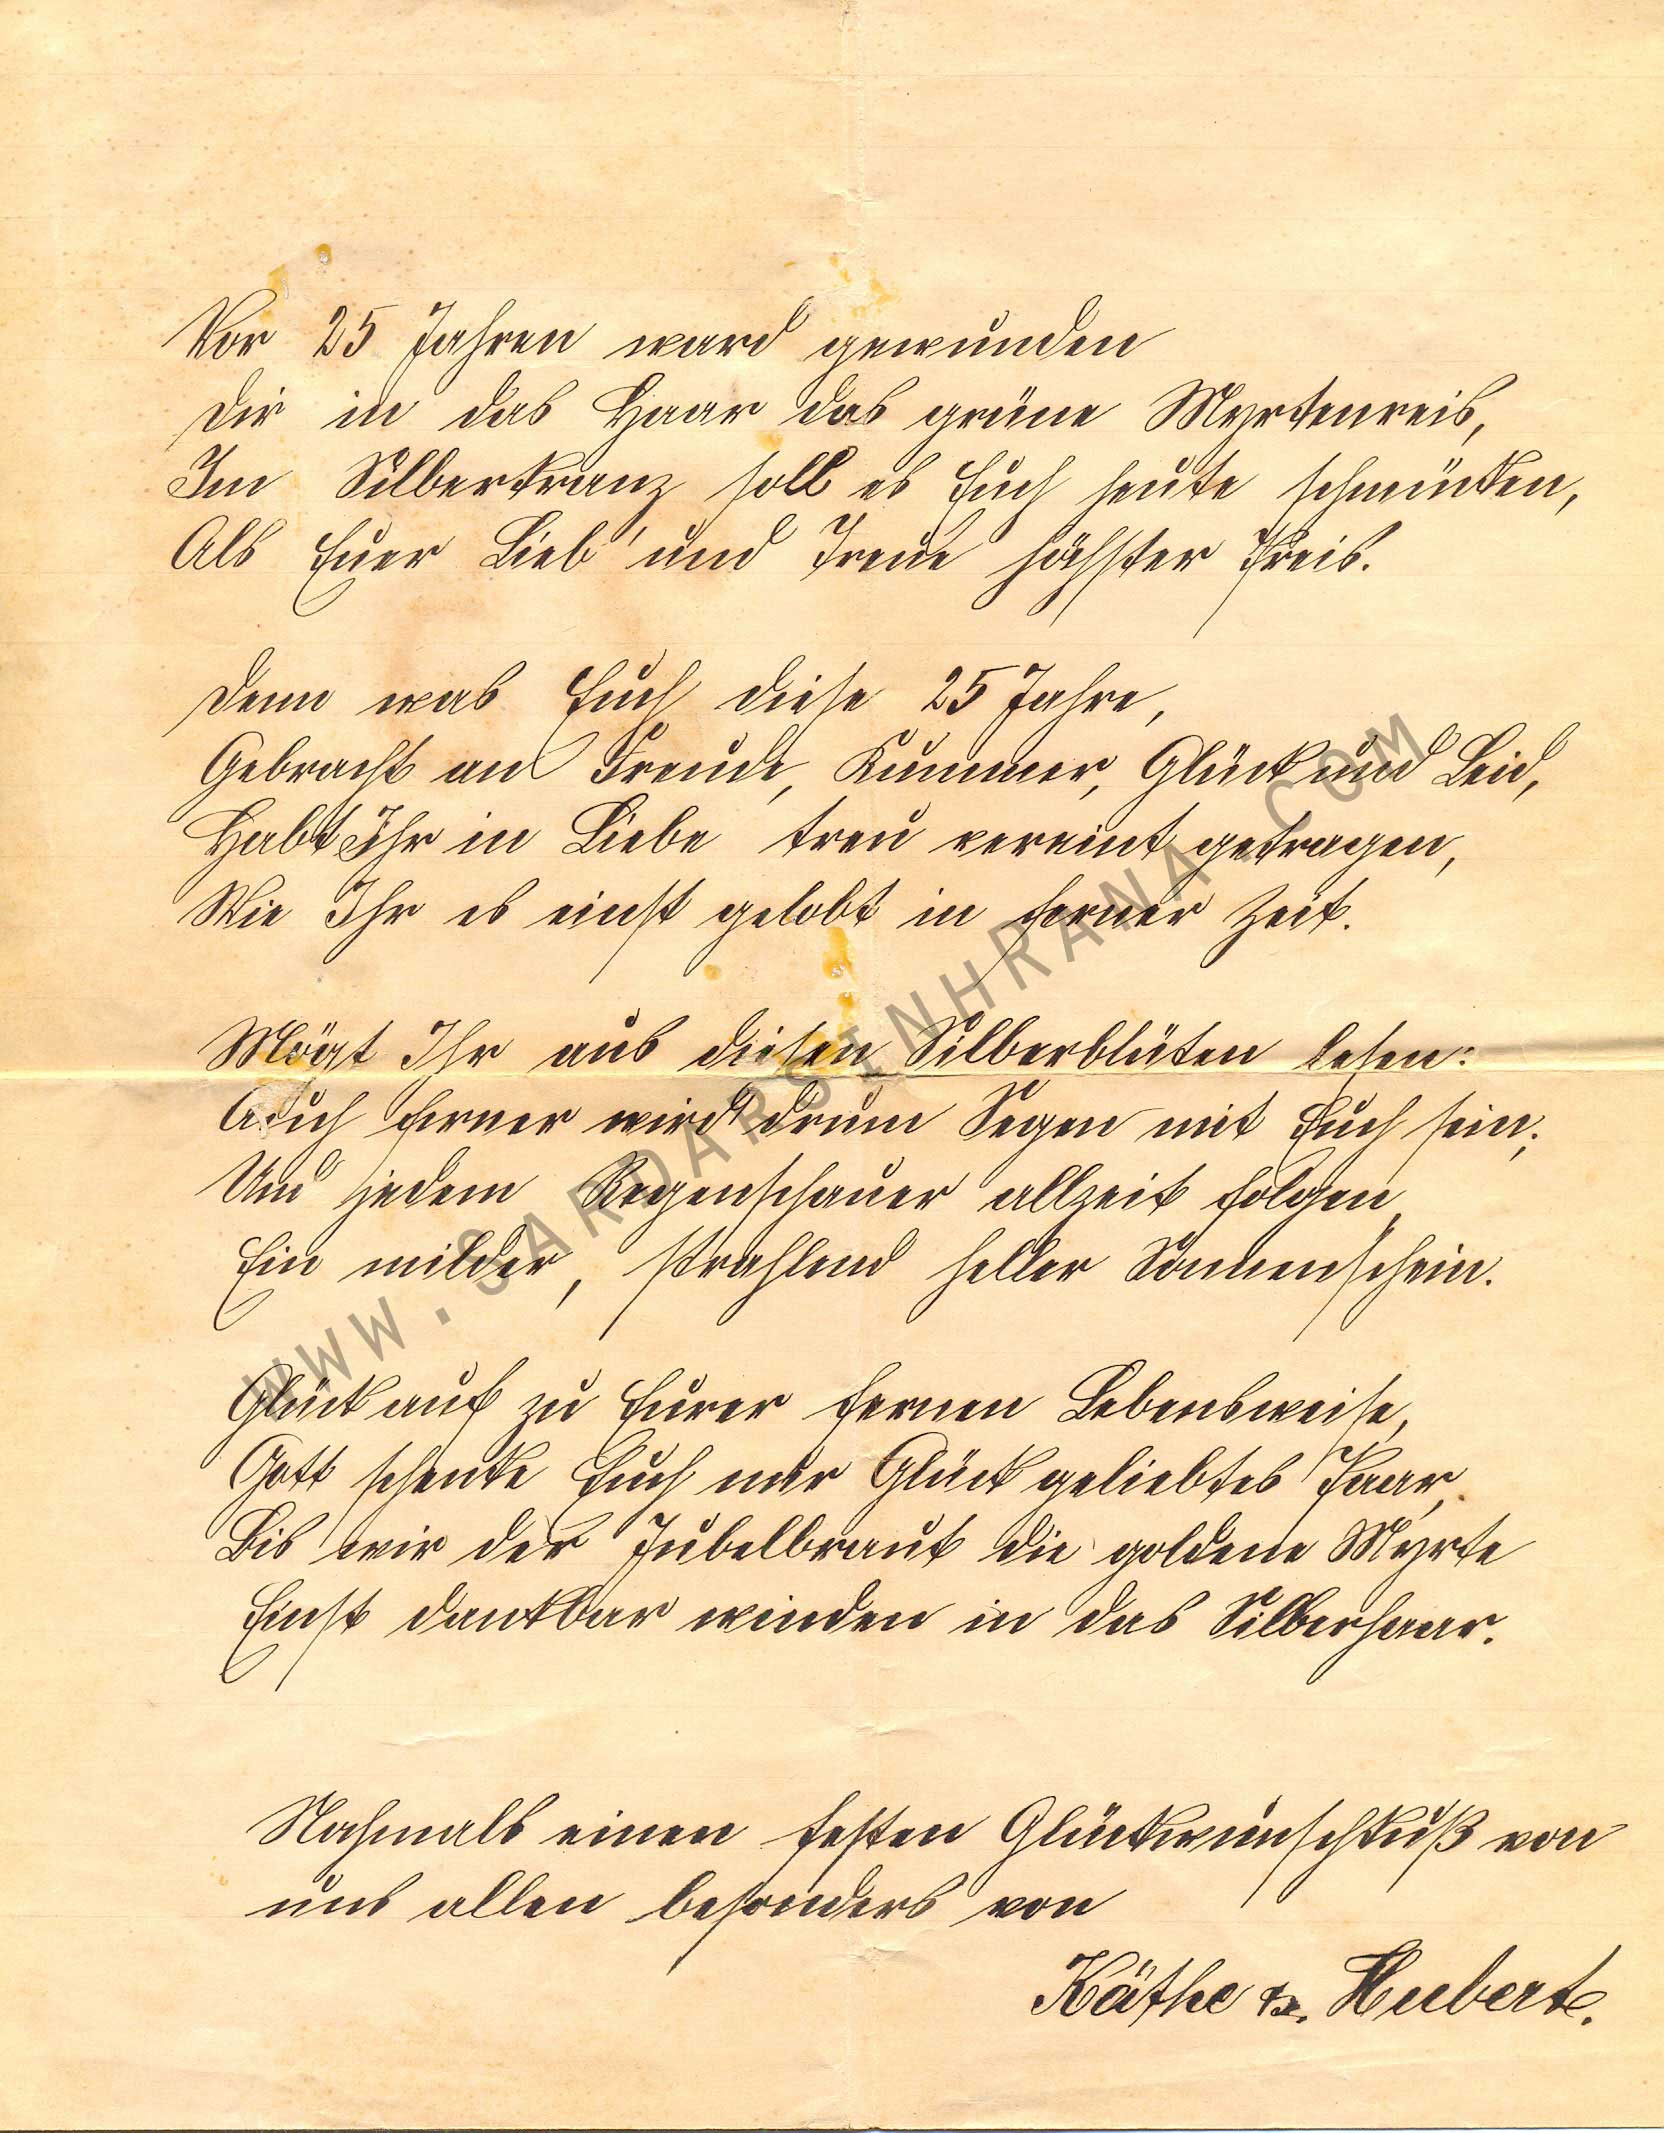 Vor 25 Jahren ward gewunden
Dir in das Haar das grüne Myrtenreis,
Im Silberkranz soll es Euch heute schmücken,
Als Euer Lieb' und Treue höchster Preis.
Denn was Euch diese 25 Jahre,
Gebracht an Freude, Kummer, Glück und Leid,
Habt Ihr in Liebe treu vereint getragen,
Wie Ihr es einst gelobt in ferner Zeit.
Mögt Ihr aus diesen Silberblüten lesen:
Auch ferner wird drum Segen mit Euch sein;
Und jedem Regenschauer allzeit folgen
Ein milder, strahlend heller Sonnenschein.
Glück auf zu Eurer fernen Lebensweise,
Gott schenke Euch nur Glück geliebtes Paar,
Bis wir der Jubelbraut die goldene Myrte
Einst dankbar winden in das Silberhaar.
Nochmals einen festen Glückwunschkuß von
uns allen besonders von
Käthe u. Hubert.
WWW.SARDARSINHRANA.COM